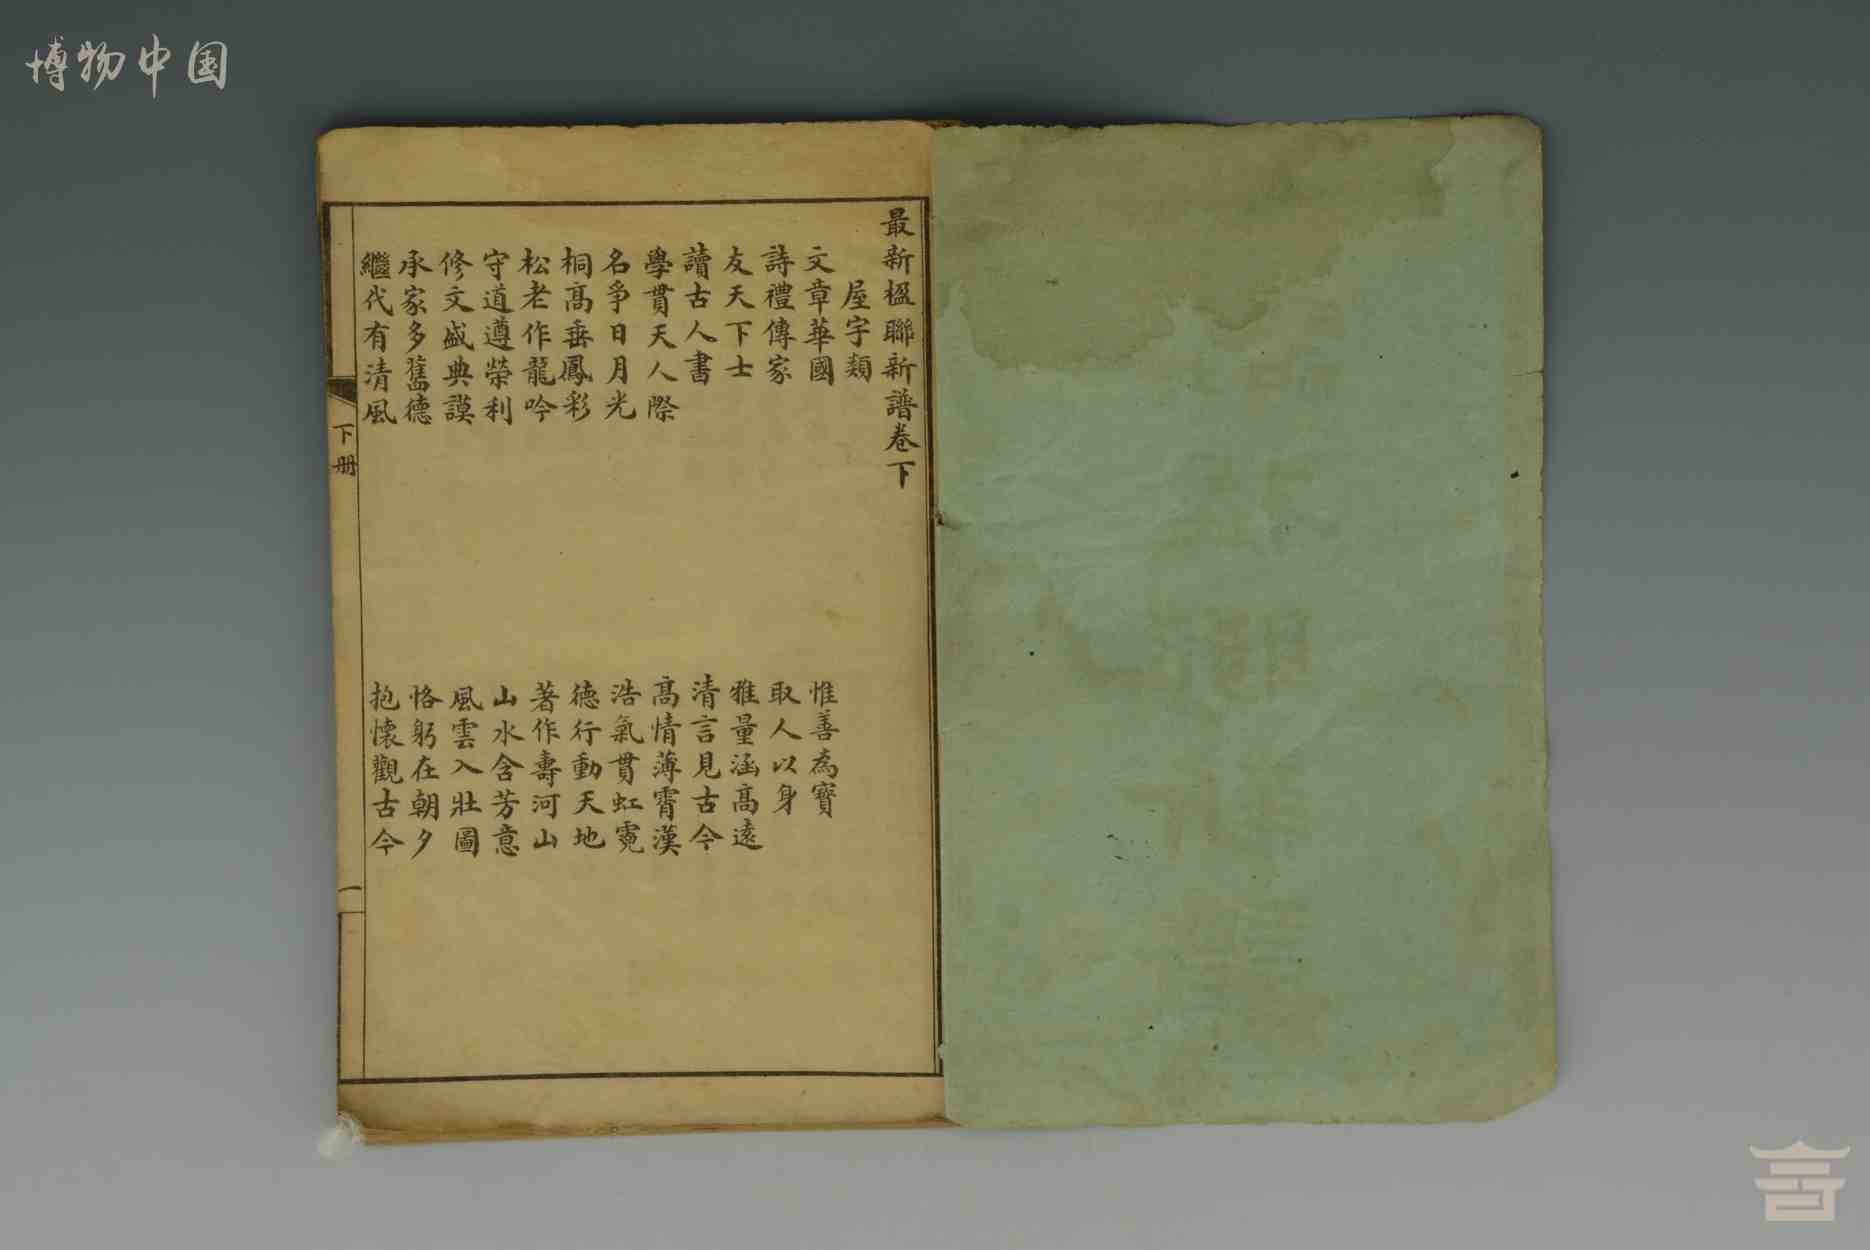 博物中国
最新楹聯新譜卷下
屋宇類
文章華國
詩禮傳家
友天下士
讀古人書
學貫天人際
名爭日月光
桐高垂鳳彩
松老作龍吟
守道遵榮利
修文盛典謨
承家多舊德
繼代有清風
惟善為寶
取人以身
雅量涵高遠
清言見古今
高情薄霄漢
浩氣貫虹霓
德行動天地
著作壽河山
山水含芳意
風雲入壯圖
恪躬在朝夕
抱懷觀古今
下册
一